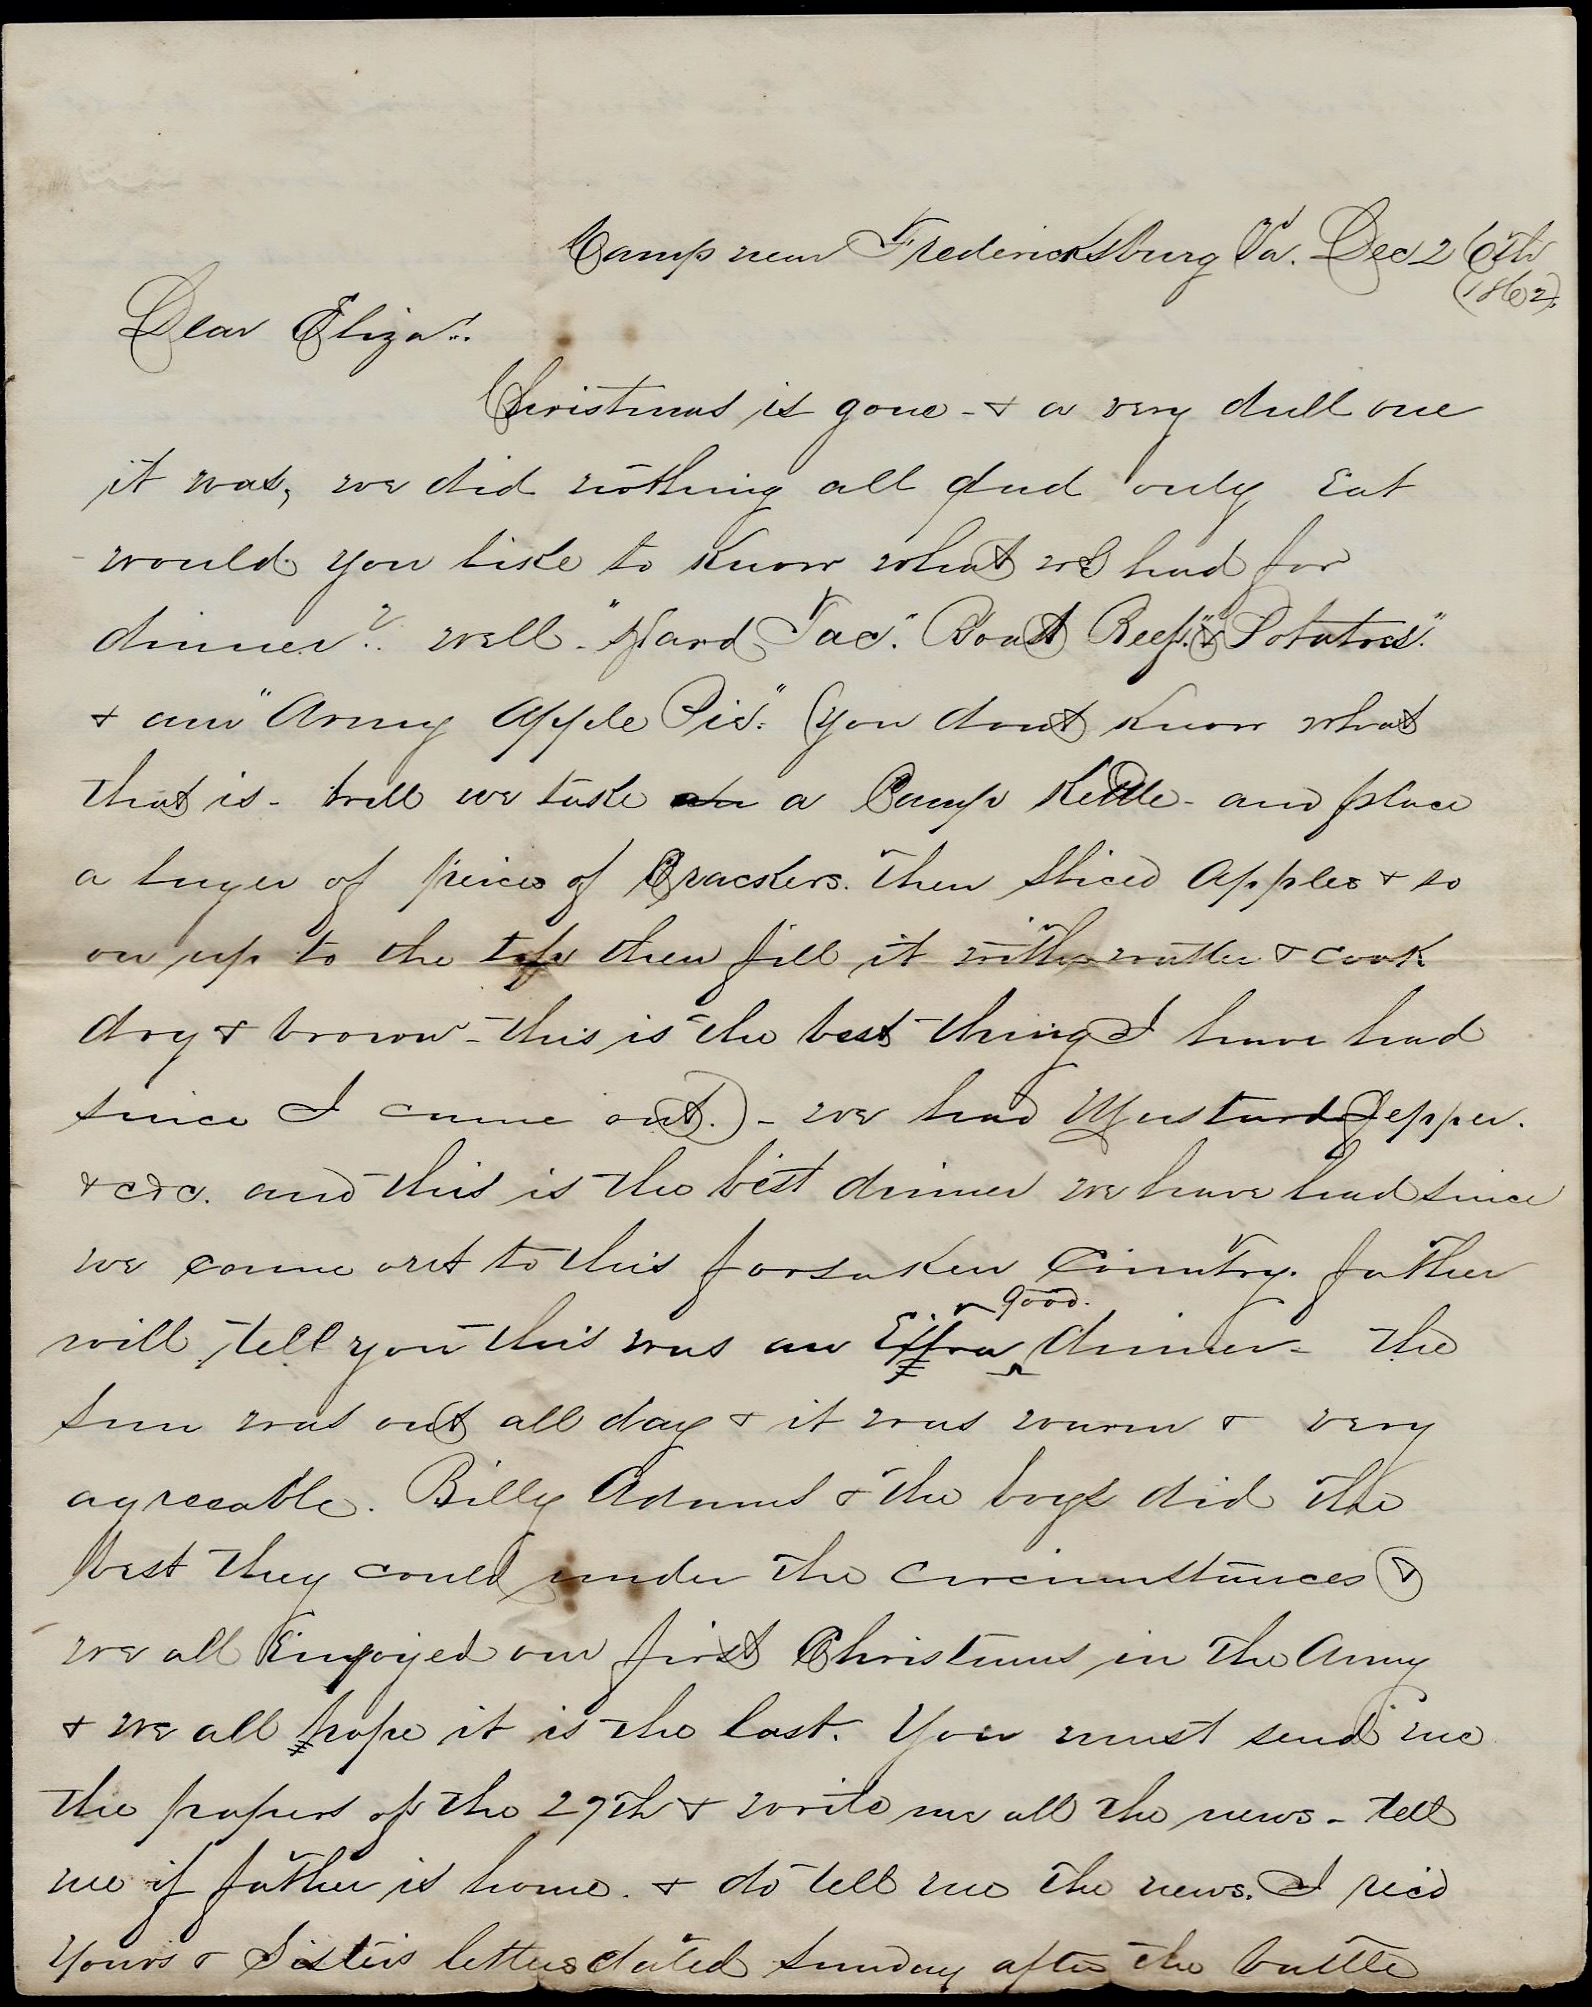 Camp near Fredericksburg Va. Dec 26th
(1862).
Dear Eliza..
Christmas is gone - & a very dull one
it was, we did nothing all only Eat
would you like to know what we had for
dinner?.. well. "Hard Tac". "Roast Beef." & "Potatoes".
& an "Army Apple Pie". (you dont know what
that is - well we take a Camp Kettle - and place
a layer of peices of Crackers. then sliced Apples & so
on up to the top then fill it with watter & cook
dry & brown - this is the best thing I have had
since I came out.) - we had Mustard Pepper.
&c&c. and this is the best dinner we have had since
we came out to this forsaken Country. father
good.
will tell you this was an Extra dinner - the
sun was out all day & it was warm & very
agreeable. Billy Adams & the boys did the
best they could under the circumstances &
we all Enjoyed our first Christmas in the Army
& we all hope it is the last. You must send me
the papers of the 27th & write me all the news - tell
me if father is home. & do tell me the news. I rec'd
Yours & Sisters letters dated Sunday after the battle